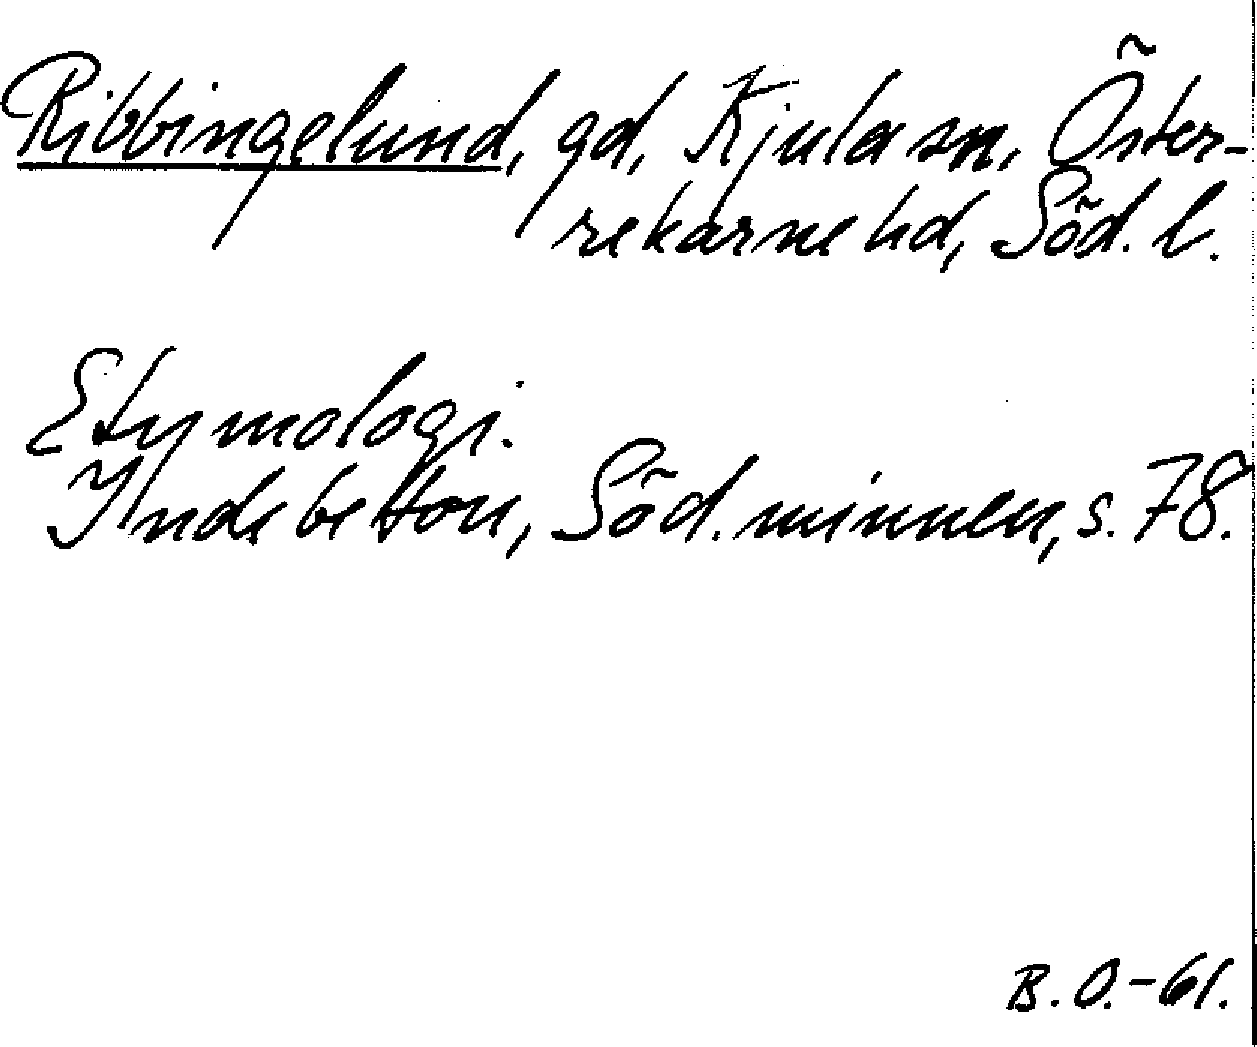 Ribbingelund, gd, Kjula sn, Öster-
rekarne hd, Söd. l.
Etymologi.
Indebetou, Söd. minnen, s. 78.
B. O. - 61.